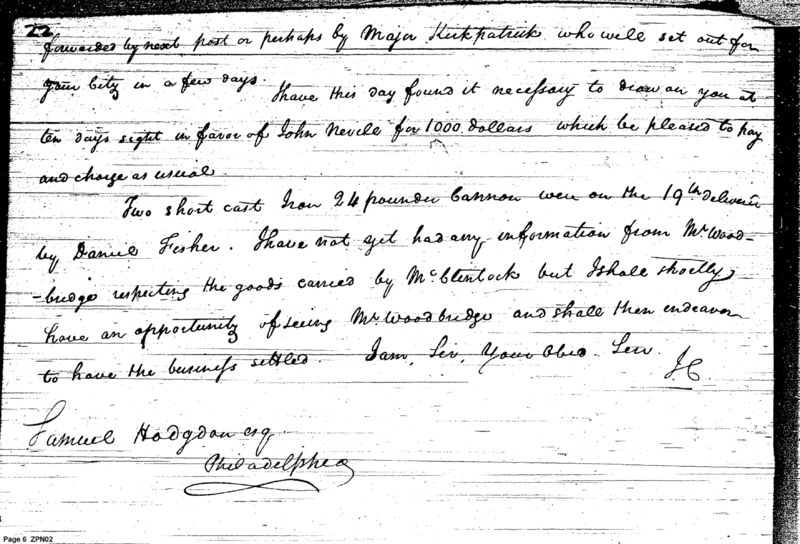 22
forwarded by next post or perhaps by Major Kirkpatrick who will set out for
your City in a few days.
I have this day found it necessary to draw on you at
ten days sight in favor of John Nevile for 1000 dollars which be pleased to pay
and charge as usual
Two short cast Iron 24 pounder Cannon were on the 19th deliverd
by Daniel Fisher. I have not yet had any information from Mr Wood-
-bridge respecting the goods carried by McClintock but I shall shortly
have an opportunity of seeing Mr Woodbridge and shall then endeavor
to have the business settled. I am, Sir, Your Obed. Serv.
JC
Samuel Hodgdon esq
Philadelphia
Page 6 ZPN02